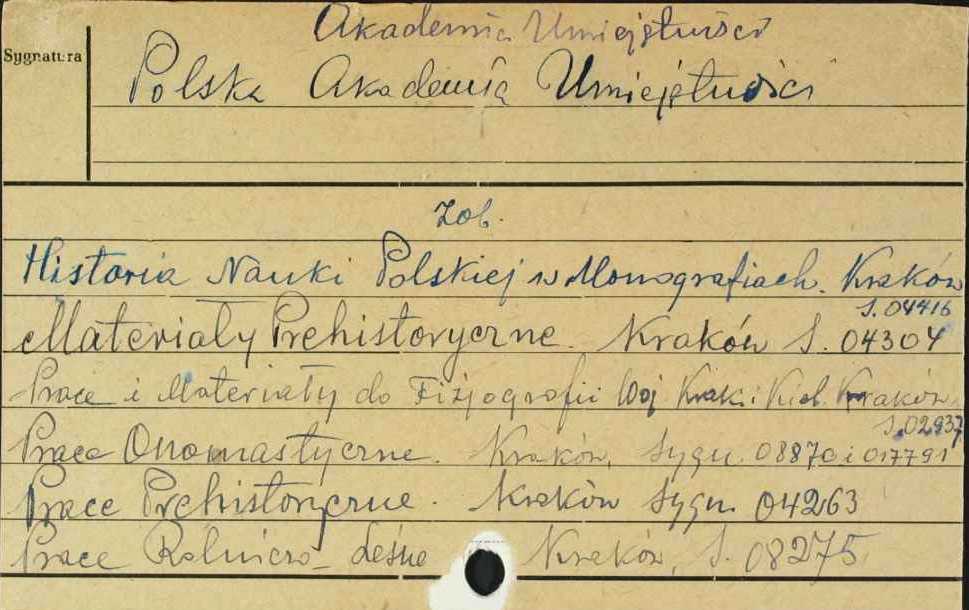 Akademia Umiejętności
Sygnatura
Polska Akademia Umiejętności
Zob.
Historia Nauki Polskiej w Monografiach. Kraków
S. 04416
Materiały Prehistoryczne. Kraków S. 04304
Prace i Materiały do Fizjografii Woj. Krak. i Kiel. Kraków.
S. 02937
Prace Onomastyczne. Kraków, Sygn. 08870 i 017791
Prace Prehistoryczne. Kraków Sygn. 04263
Prace Rolniczo-Leśne Kraków, S. 08275